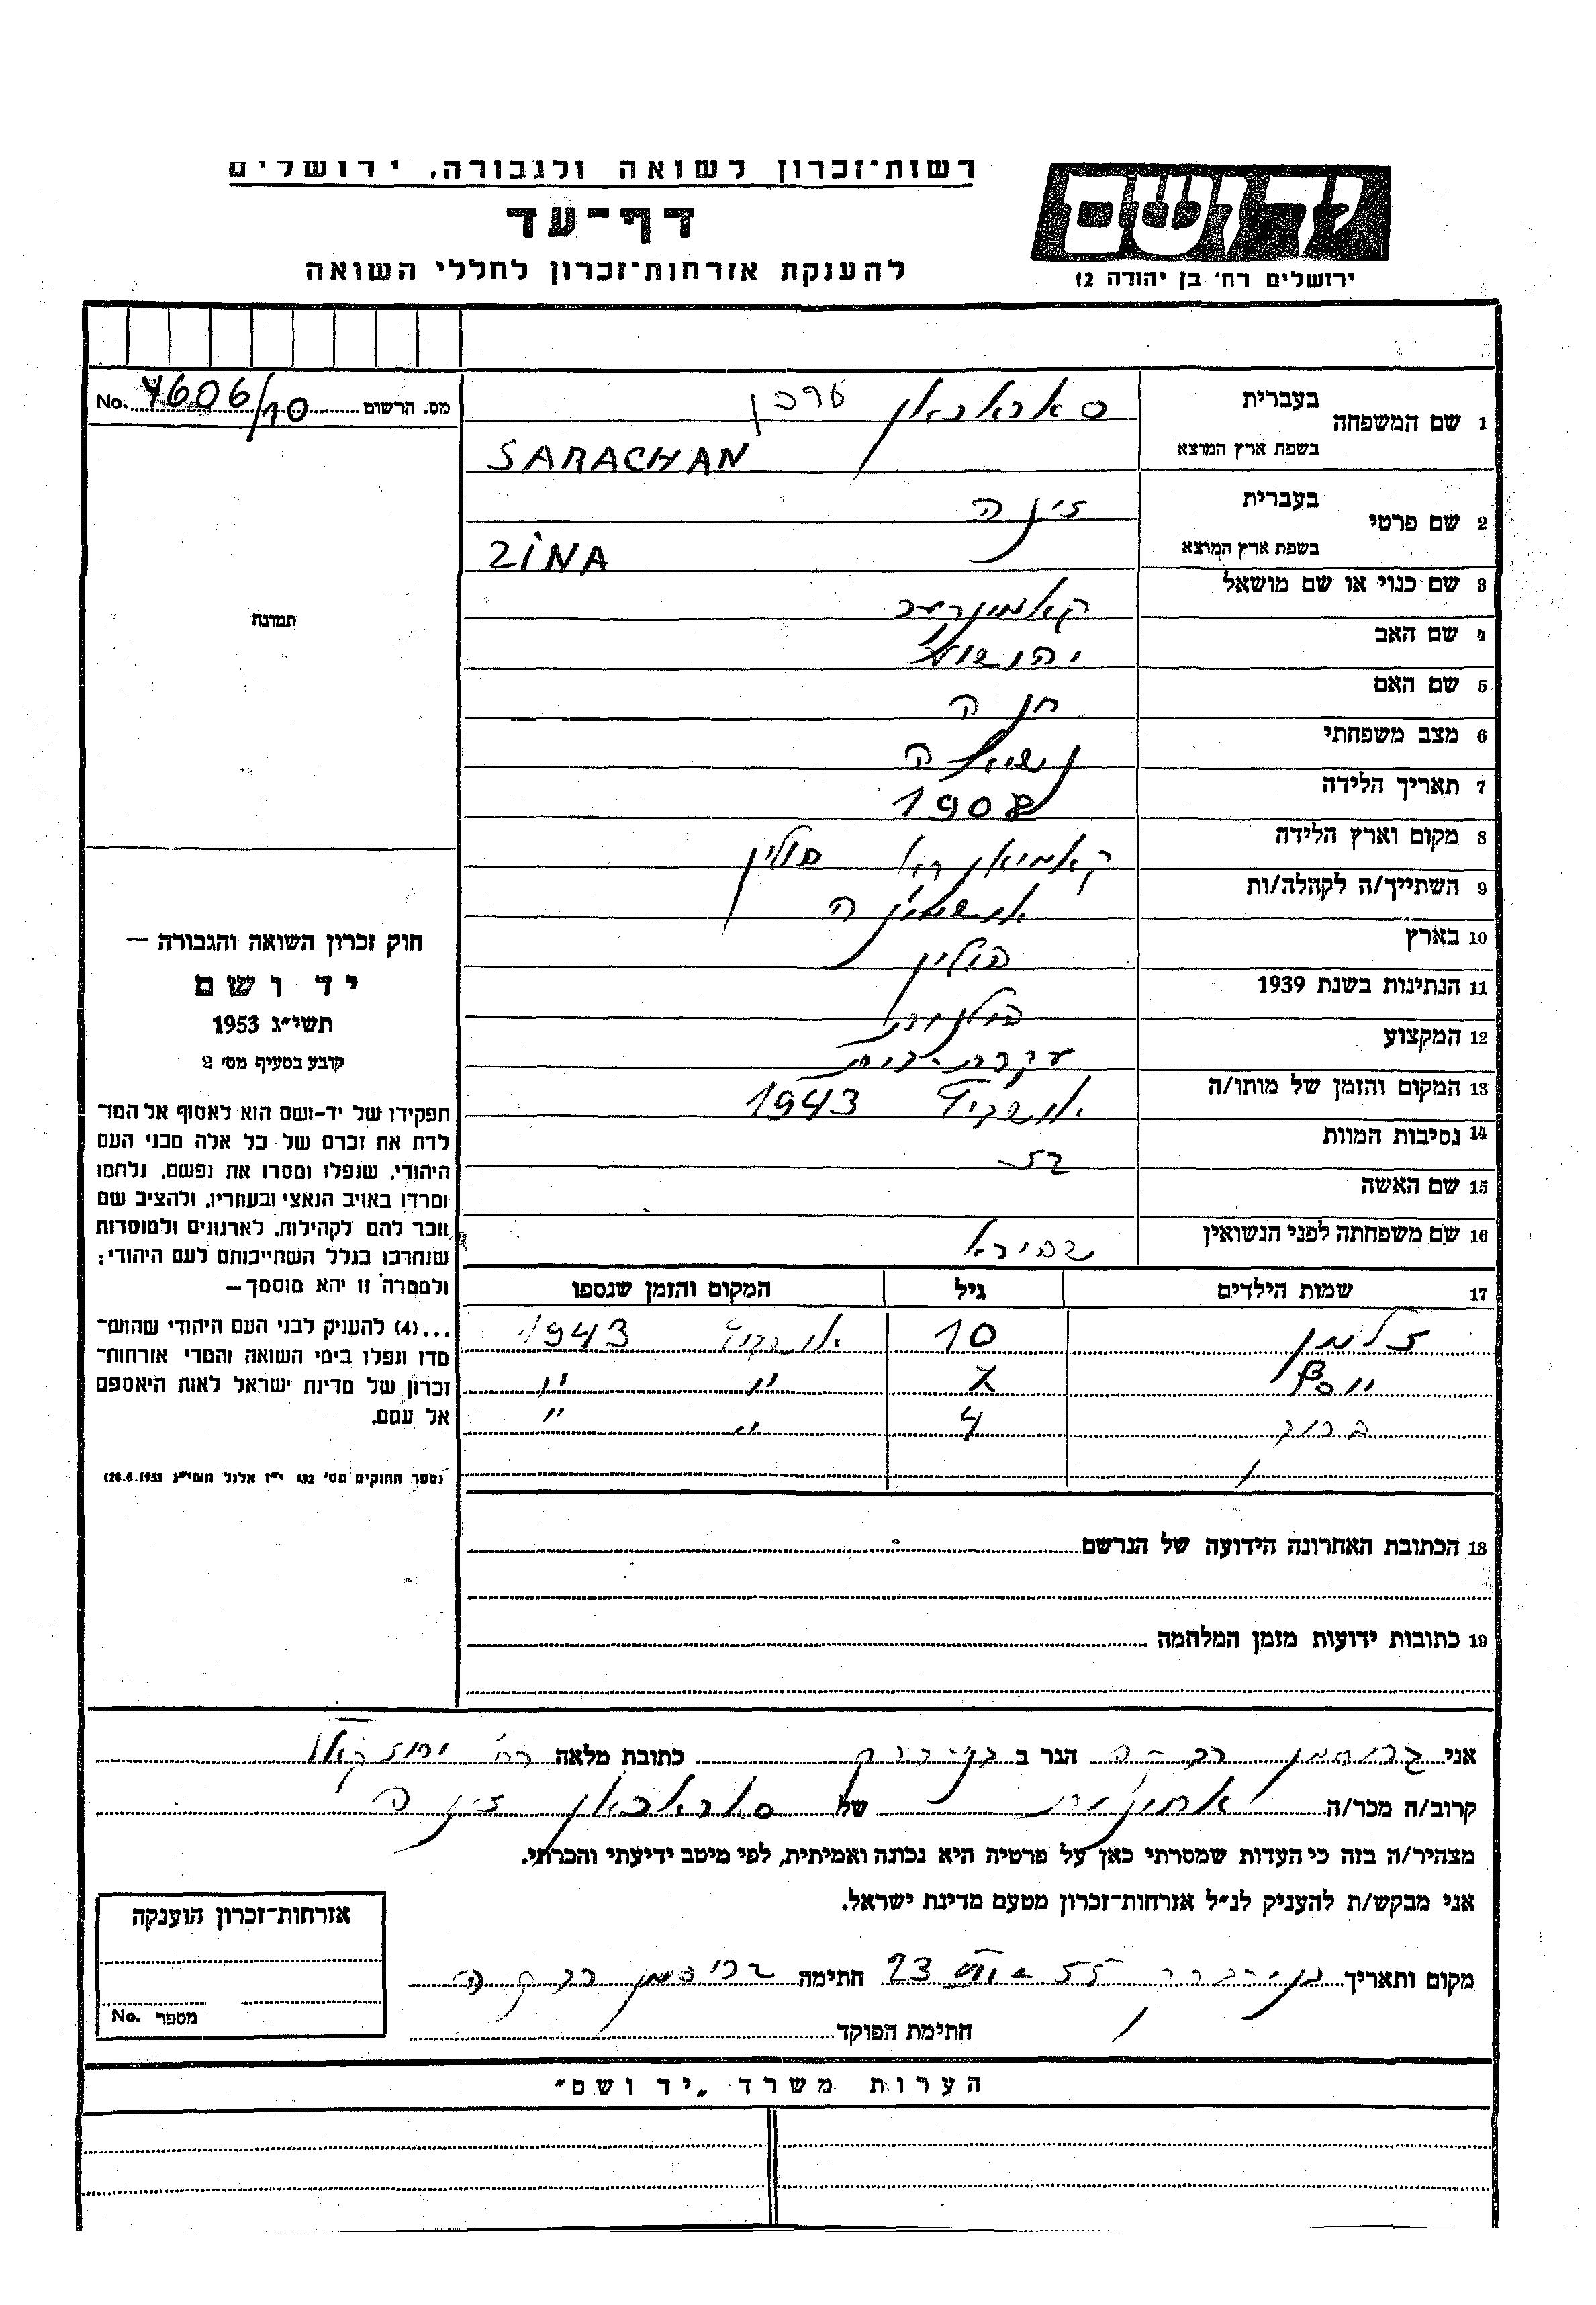 רשות־זכרון לשואה ולגבורה, ירושלים
דף־עד
להענקת אזרחות־זכרון לחללי השואה
יד ושם
ירושלים רח׳ בן יהודה 12
מס. הרשום No. 4606/10
1 שם המשפחה בעברית סאראכאן סרכן
בשפת ארץ המוצא SARACHAN
2 שם פרטי בעברית זינה
בשפת ארץ המוצא ZINA
3 שם כנוי או שם מושאל
4 שם האב יהושע
5 שם האם חנה
6 מצב משפחתי נשואה
7 תאריך הלידה 1908
8 מקום וארץ הלידה פולין
9 השתייך/ה לקהלה/ות
10 בארץ פולין
11 הנתינות בשנת 1939 פולנית
12 המקצוע עקרת-בית
13 המקום והזמן של מותו/ה 1943
14 נסיבות המוות גז
15 שם האשה
16 שם משפחתה לפני הנשואין שפירא
17 שמות הילדים גיל המקום והזמן שנספו
זלמן 10 1943
יוסף " "
ברוך 4 " "
18 הכתובת האחרונה הידועה של הנרשם
19 כתובות ידועות מזמן המלחמה
תמונה
חוק זכרון השואה והגבורה –
יד ושם
תשי״ג 1953
קובע בסעיף מס׳ 2
תפקידו של יד-ושם הוא לאסוף אל המו־
לדת את זכרם של כל אלה מבני העם
היהודי, שנפלו ומסרו את נפשם, נלחמו
ומרדו באויב הנאצי ובעוזריו, ולהציב שם
וזכר להם לקהילות, לארגונים ולמוסדות
שנחרבו בגלל השתייכותם לעם היהודי;
ולמטרה זו יהא מוסמך –
...(4) להעניק לבני העם היהודי שהוש־
מדו ונפלו בימי השואה והמרי אזרחות־
זכרון של מדינת ישראל לאות היאספם
אל עמם.
(ספר החוקים מס׳ 132 י״ז אלול תשי״ג 28.8.1953)
אני רבקה הגר ב בני-ברק כתובת מלאה רח׳ יחזקאל
קרוב/ה מכר/ה של סאראכאן זינה
מצהיר/ה בזה כי העדות שמסרתי כאן על פרטיה היא נכונה ואמיתית, לפי מיטב ידיעתי והכרתי.
אני מבקש/ת להעניק לנ״ל אזרחות־זכרון מטעם מדינת ישראל.
מקום ותאריך בני-ברק 23 55 חתימה רבקה
חתימת הפוקד
אזרחות־זכרון הוענקה
מספר No.
הערות משרד „יד ושם״